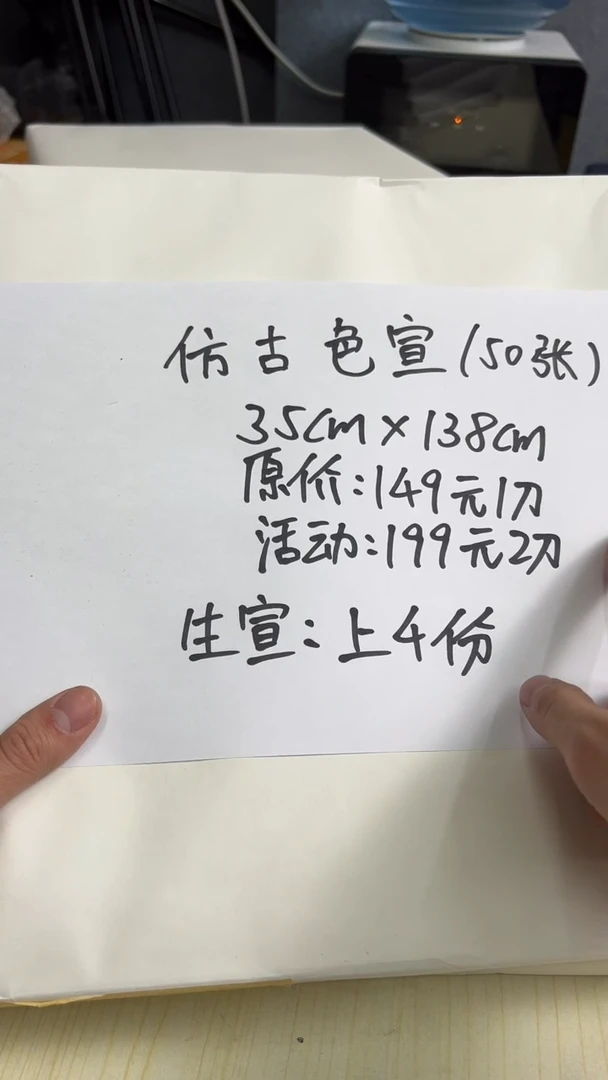 仿古色宣(50张)
35cm×138cm
原价:149元1刀
活动:199元2刀
生宣:上4份